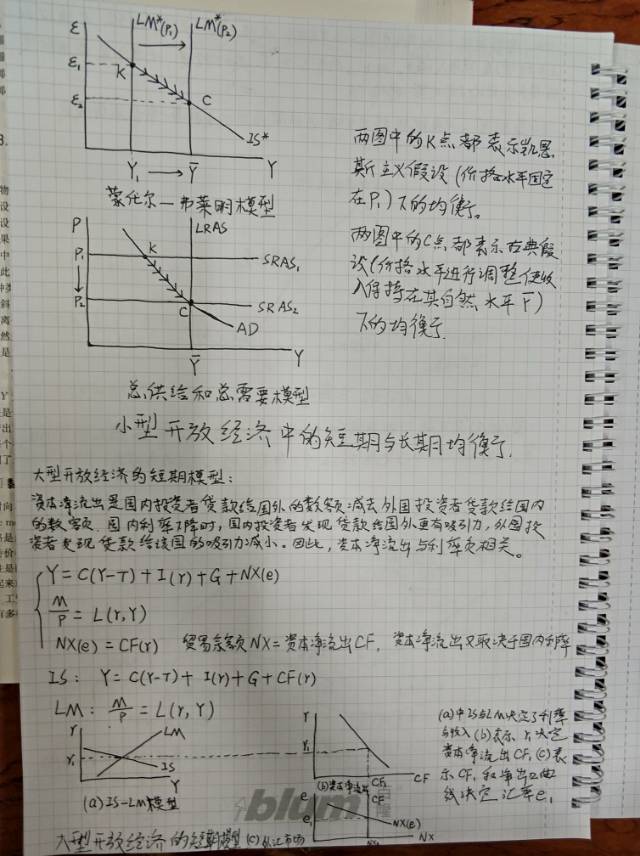 ε
LM*(P₁)
LM*(P₂)
ε₁
K
ε₂
C
IS*
Y₁ → Ȳ
Y
蒙代尔—弗莱明模型
两图中的K点都表示凯恩
斯主义假设(价格水平固定
在P₁)下的均衡。
P
LRAS
P₁
K
SRAS₁
P₂
C
SRAS₂
AD
Ȳ
Y
两图中的C点都表示古典假
设(价格水平进行调整使收
入保持在其自然水平Ȳ)
下的均衡
总供给和总需要模型
小型开放经济中的短期与长期均衡
大型开放经济的短期模型:
资本净流出是国内投资者贷款给国外的数额减去外国投资者贷款给国内
的数额。国内利率下降时,国内投资者发现贷款给国外更有吸引力,外国投
资者发现贷款给该国的吸引力减小。因此,资本净流出与利率负相关。
Y=C(Y-T)+I(r)+G+NX(e)
M/P=L(r,Y)
NX(e)=CF(r) 贸易余额NX=资本净流出CF,资本净流出又取决于国内利率
IS: Y=C(Y-T)+I(r)+G+CF(r)
LM: M/P=L(r,Y)
r
LM
r₁
IS
Y
(a)IS-LM模型
r
r₁
CF₁
CF
(b)资本净流出
(a)中IS与LM决定了利率
与收入(b)表示r₁决定
资本净流出CF₁(c)表
示CF₁和净出口曲
线决定汇率e₁
e
CF
e₁
NX(e)
NX₁
NX
大型开放经济的短期模型
(c)外汇市场
blum